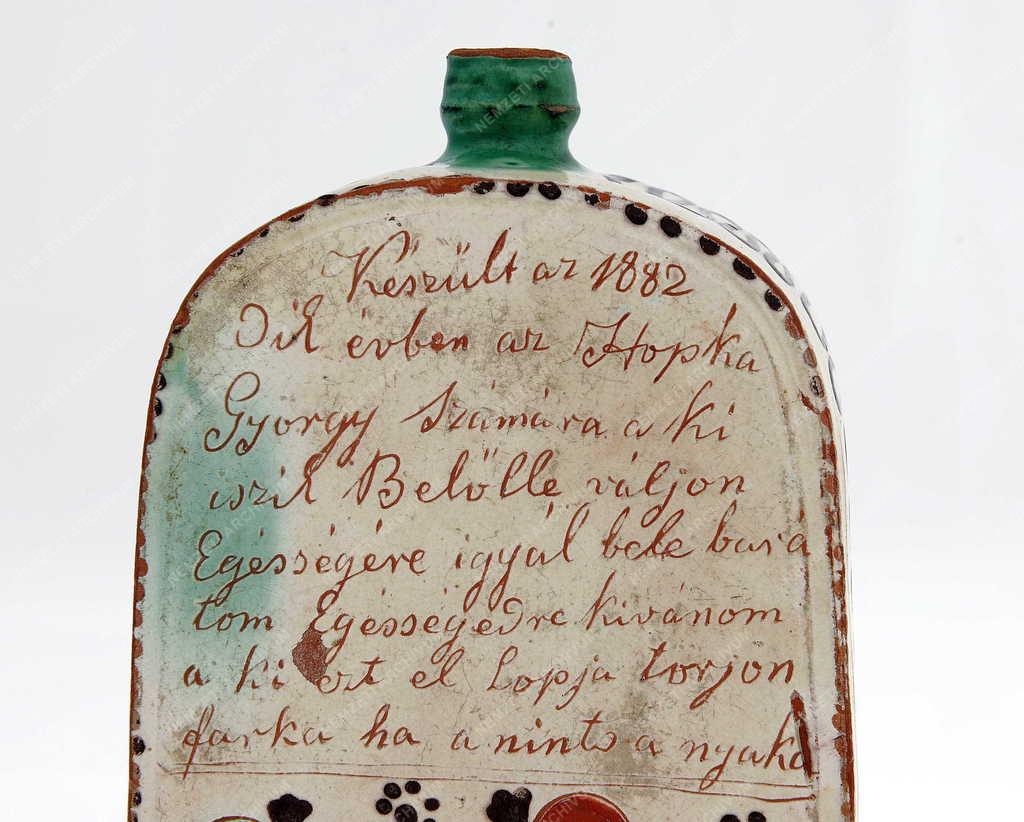 Készűlt az 1882
Dik évben az Hopka
György számára a ki
iszik Belőlle váljon
Egésségére igyál bele bara
tom Egésségedre kivánom
a ki ezt el Lopja torjon
farka ha a nints a nyaka
NEMZETI ARCHÍVUM